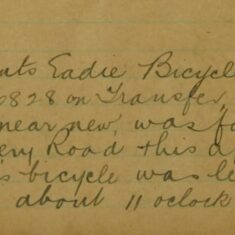 nts Eadie Bicycl
0828 on Transfer
near new, was fo
ery Road this a
s bicycle was le
about 11 oclock